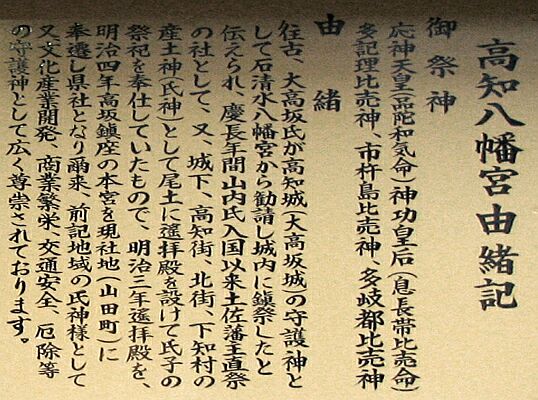 高知八幡宮由緒記
御祭神
応神天皇(品陀和気命)神功皇后(息長帯比売命)
多記理比売神、市杵島比売神、多岐都比売神
由緒
往古、大高坂氏が高知城(大高坂城の守護神と
して石清水八幡宮から勧請し城内に鎮祭したと
伝えられ、慶長年間山内氏入国以来土佐藩主直祭
の社として、又、城下、高知街、北街、下知村の
産土神(氏神)として尾土に遙拝殿を設けて氏子の
祭祀を奉仕していたもので、明治三年遙拝殿を、
明治四年高坂鎮座の本宮を現社地(山田町)に
奉遷し県社となり爾来、前記地域の氏神様として
又文化産業開発、商業繁栄、交通安全、厄除等
の守護神として広く尊崇されております。